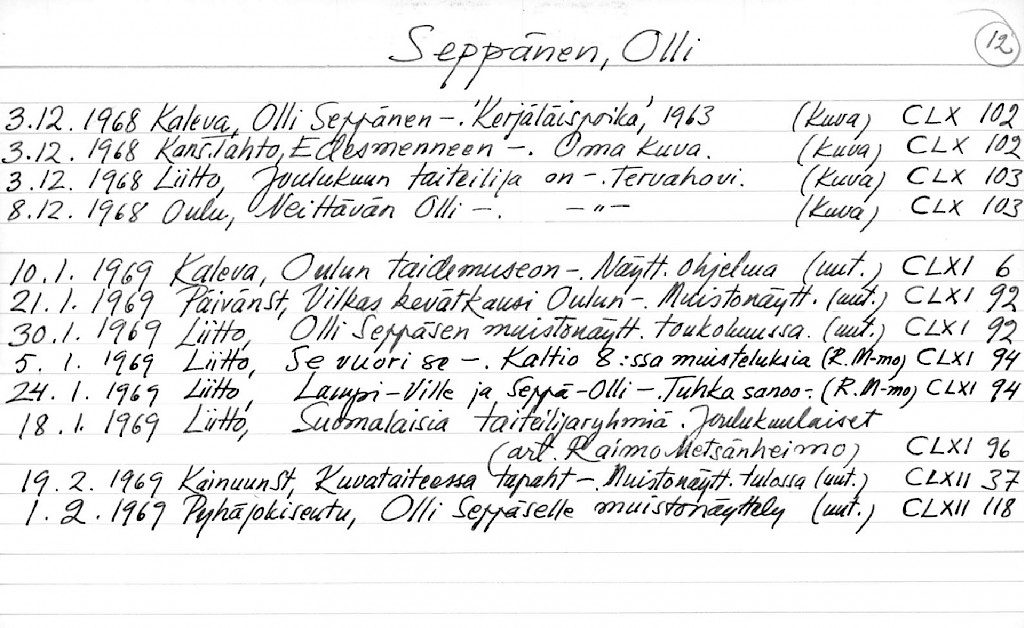 Seppänen, Olli
12
3.12. 1968 Kaleva, Olli Seppänen -. 'Kerjäläispoika', 1963 (kuva) CLX 102
3.12. 1968 Kans.tahto, Edesmenneen -. Oma kuva. (kuva) CLX 102
3.12. 1968 Liitto, Joulukuun taiteilija on -. Tervahovi. (kuva) CLX 103
8.12. 1968 Oulu, Neittävän Olli -. -"- (kuva) CLX 103
10.1. 1969 Kaleva, Oulun taidemuseon -. Näytt. ohjelma (uut.) CLXI 6
21.1. 1969 Päivänst, Vilkas kevätkausi Oulun -. Muistonäytt. (uut.) CLXI 92
30.1. 1969 Liitto, Olli Seppäsen muistonäytt. toukokuussa. (uut.) CLXI 92
5. 1. 1969 Liitto, Se vuori se -. Kaltio 8:ssa muisteluksia (R.M-mo) CLXI 94
24. 1. 1969 Liitto, Lampi-Ville ja Seppä-Olli - Tuhka sanoo -. (R.M-mo) CLXI 94
18.1. 1969 Liitto, Suomalaisia taiteilijaryhmiä. Joulukuulaiset
(art. Raimo Metsänheimo) CLXI 96
19. 2. 1969 Kainuunst, Kuvataiteessa tapaht -. Muistonäytt. tulossa (uut.) CLXII 37
1. 2. 1969 Pyhäjokiseutu, Olli Seppäselle muistonäyttely (uut.) CLXII 118